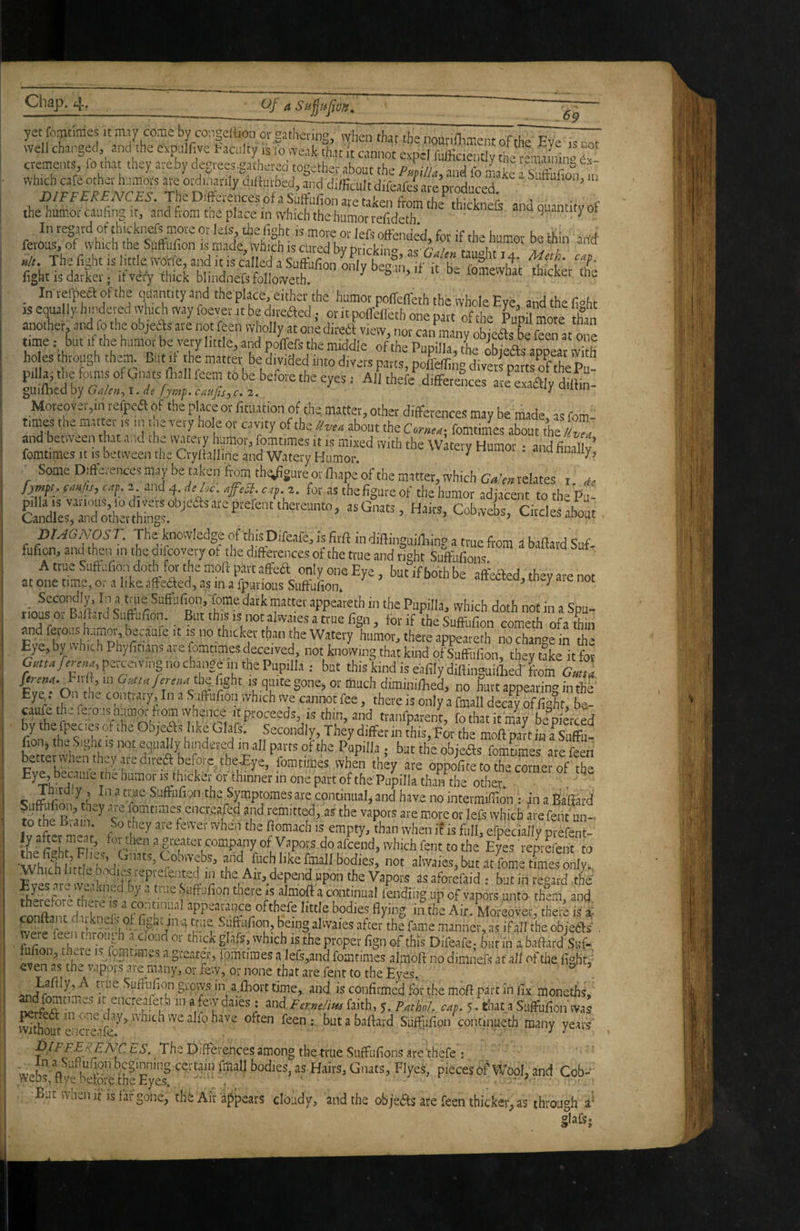 Chap. 4. Of a Suffusion. 69
yet somtimes it may come by congestion or gathering, when that the nourishment of the Eye is not
well changed, and the expulsive Faculty is so weak that it cannot expel sufficiently the remaining ex-
crements, so that they are by degrees gathered together about the Pupilla, and so make a Suffusion, in
which case other humors are ordinarily disturbed, and difficult diseases are produced.
DIFFERENCES. The Differences of a Suffusion are taken from the thickness and quantity of
the humor causing it, and from the place in which the humor resideth.
In regard of thickness more or less, the sight is more or less offended, for if the humor be thin and
serous, of which the Suffusion is made, which is cured by pricking, as Galen taught 14. Meth. cap.
ult. The sight is little worse, and it is called a Suffusion only begun, if it be somewhat thicker the
sight is darker; if very thick blindness followeth.
In respect of the quantity and the place, either the humor possesseth the whole Eye, and the sight
is equally hindered which way soever it be directed; or it possesseth one part of the Pupil more than
another, and so the objects are not seen wholly at one direct view, nor can many objects be seen at one
time: but if the humor be very little, and possess the middle of the Pupilla, the objects appear with
holes through them. But if the matter be divided into divers parts, possessing divers parts of the Pu-
pilla; the forms of Gnats shall seem to be before the eyes: All these differences are exactly distin-
guished by Galen, 1. de symp. causis, c. 2.
Moreover, in respect of the place or situation of the matter, other differences may be made, as som-
times the matter is in the very hole or cavity of the Uvea about the Cornea; somtimes about the Uvea,
and between that and the watery humor, somtimes it is mixed with the Watery Humor: and finally,
somtimes it is between the Crystalline and Watery Humor.
Some Differences may be taken from the figure or shape of the matter, which Galen relates 1. de
sympt. causis, cap. 2. and 4. de loc. affect. cap. 2. for as the figure of the humor adjacent to the Pu-
pilla is various, so divers objects are present thereunto, as Gnats, Hairs, Cobwebs, Circles about
Candles, and other things.
DIAGNOST. The knowledge of this Disease, is first in distinguishing a true from a bastard Suf-
fusion, and then in the discovery of the differences of the true and right Suffusions.
A true Suffusion doth for the most part affect only one Eye, but if both be affected, they are not
at one time, or a like affected, as in a spurious Suffusion.
Secondly, In a true Suffusion, some dark matter appeareth in the Pupilla, which doth not in a Spu-
rious or Bastard Suffusion. But this is not alwaies a true sign, for if the Suffusion cometh of a thin
and serous humor, because it is no thicker than the Watery humor, there appeareth no change in the
Eye, by which Physitians are somtimes deceived, not knowing that kind of Suffusion, they take it for
Gutta serena, perceiving no change in the Pupilla: but this kind is easily distinguished from Gutta
serena. First, in Gutta serena the sight is quite gone, or much diminished, no hurt appearing in the
Eye: On the contrary, In a Suffusion which we cannot see, there is only a small decay of sight, be-
cause the serous humor from whence it proceeds, is thin, and transparent, so that it may be pierced
by the species of the Objects like Glass. Secondly, They differ in this, For the most part in a Suffu-
sion, the Sight is not equally hindered in all parts of the Pupilla: but the objects somtimes are seen
better when they are direct before the Eye, somtimes when they are opposite to the corner of the
Eye, because the humor is thicker or thinner in one part of the Pupilla than the other.
Thirdly, In a true Suffusion the Symptomes are continual, and have no intermission: in a Bastard
Suffusion, they are somtimes encreased and remitted, as the vapors are more or less which are sent un-
to the Brain. So they are fewer when the stomach is empty, than when it is full, especially present-
ly after meat, for then a greater company of Vapors do ascend, which sent to the Eyes represent to
the sight, Flies, Gnats, Cobwebs, and such like small bodies, not alwaies, but at some times only.
Which little bodies represented in the Air, depend upon the Vapors as aforesaid: but in regard the
Eyes are weakned by a true Suffusion there is almost a continual sending up of vapors unto them, and
therefore there is a continual appearance of these little bodies flying in the Air. Moreover, there is a
constant darkness of sight in a true Suffusion, being alwaies after the same manner, as if all the objects
were seen through a cloud or thick glass, which is the proper sign of this Disease; but in a bastard Suf-
fusion, there is somtimes a greater, somtimes a less, and somtimes almost no dimness at all of the sight,
even as the vapors are many, or few, or none that are sent to the Eyes.
Lastly, A true Suffusion grows in a short time, and is confirmed for the most part in six moneths,
and somtimes it encreaseth in a few daies: and Fernelius saith, 5. Pathol. cap. 5. that a Suffusion was
perfect in one day, which we also have often seen: but a bastard Suffusion continueth many years
without encrease.
DIFFERENCES. The Differences among the true Suffusions are these:
In a Suffusion beginning certain small bodies, as Hairs, Gnats, Flyes, pieces of Wool, and Cob-
webs, flye before the Eyes.
But when it is far gone, the Air appears cloudy, and the objects are seen thicker, as through a
glass;